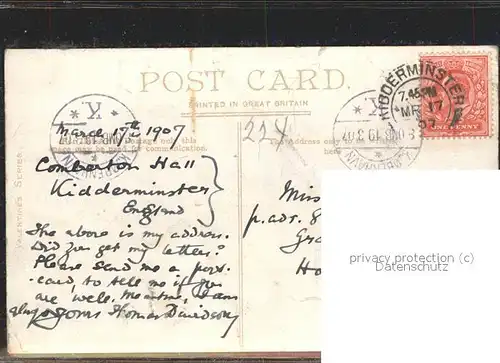 POST CARD
PRINTED IN GREAT BRITAIN
KIDDERMINSTER
7.45PM
MR 17
07
ONE PENNY
K
K
224
VALENTINE'S SERIES
may be used for communication.
March 17th 1907
Comberton Hall
Kidderminster
England
The above is my address.
Did you get my letters?
Please send me a post-
card, to tell me if you
are well. Meantime, I am
always yours Thomas Davidson
Miss
p. adr. 8
Gra
Ho
privacy protection (c)
Datenschutz